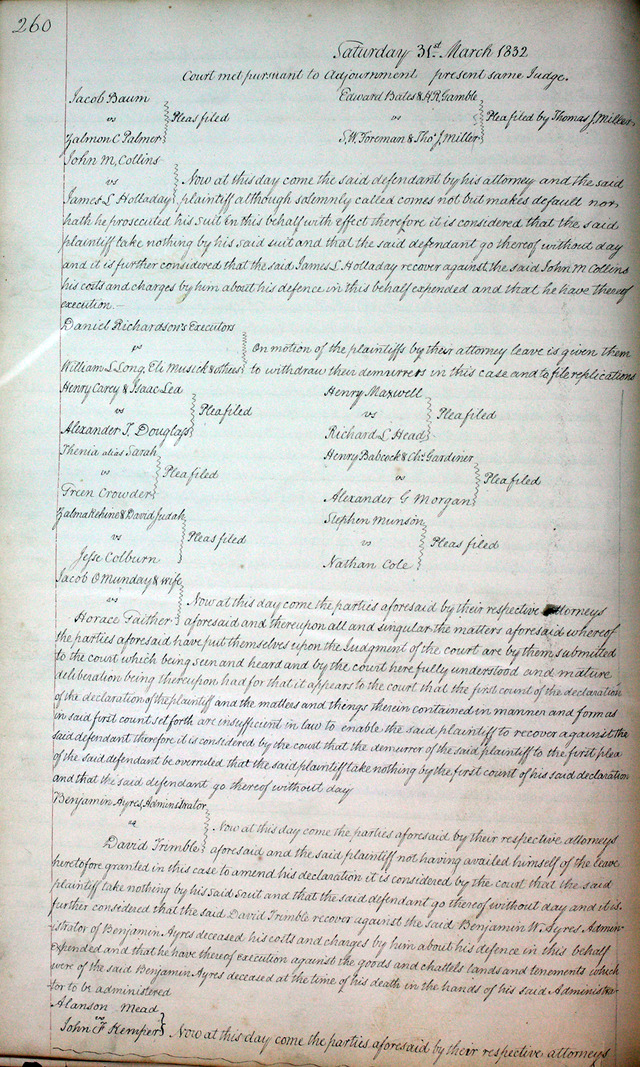 260
Saturday 31st March 1832
Court met pursuant to Adjournment present same Judge.
Jacob Baum
vs
Pleas filed
Zalmon C Palmer
Edward Bates & H.R. Gamble
vs
Plea filed by Thomas J. Miller
S.W. Foreman & Thos J. Miller
John M. Collins
vs
James L Holladay
Now at this day come the said defendant by his attorney and the said
plaintiff although solemnly called comes not but makes default nor
hath he prosecuted his suit in this behalf with effect therefore it is considered that the said
plaintiff take nothing by his said suit and that the said defendant go thereof without day
and it is further considered that the said James L Holladay recover against the said John M Collins
his costs and charges by him about his defence in this behalf expended and that he have thereof
execution.—
Daniel Richardson's Executors
vs
William L Long, Eli Musick & others
On motion of the plaintiffs by their attorney leave is given them
to withdraw their demurrers in this case and to file replications
Henry Carey & Isaac Lea
vs
Plea filed
Alexander T. Douglass
Henry Maxwell
vs
Plea filed
Richard L Head
Thenia alias Sarah
vs
Plea filed
Green Crowder
Henry Babcock & Chs. Gardiner
vs
Plea filed
Alexander G Morgan
& David Judah
vs
Pleas filed
Jesse Colburn
Stephen Munson
vs
Pleas filed
Nathan Cole
Jacob O Munday & wife
vs
Horace Gaither
Now at this day come the parties aforesaid by their respective attorneys
aforesaid and thereupon all and singular the matters aforesaid whereof
the parties aforesaid have put themselves upon the Judgment of the court are by them submitted
to the court which being seen and heard and by the court here fully understood and mature
deliberation being thereupon had for that it appears to the court that the first count of the declaration
of the declaration of the plaintiff and the matters and things therein contained in manner and form as
in said first count set forth are insufficient in law to enable the said plaintiff to recover against the
said defendant therefore it is considered by the court that the demurrer of the said plaintiff to the first plea
of the said defendant be overruled that the said plaintiff take nothing by the first count of his said declaration
and that the said defendant go thereof without day
Benjamin Ayres Administrator
vs
David Trimble
Now at this day come the parties aforesaid by their respective attorneys
aforesaid and the said plaintiff not having availed himself of the leave
heretofore granted in this case to amend his declaration it is considered by the court that the said
plaintiff take nothing by his said suit and that the said defendant go thereof without day and it is
further considered that the said David Trimble recover against the said Benjamin W. Ayres Admin-
istrator of Benjamin Ayres deceased his costs and charges by him about his defence in this behalf
expended and that he have thereof execution against the goods and chattels lands and tenements which
were of the said Benjamin Ayres deceased at the time of his death in the hands of his said Administra-
tor to be administered
Alanson Mead
vs
John F Kemper
Now at this day come the parties aforesaid by their respective attorneys